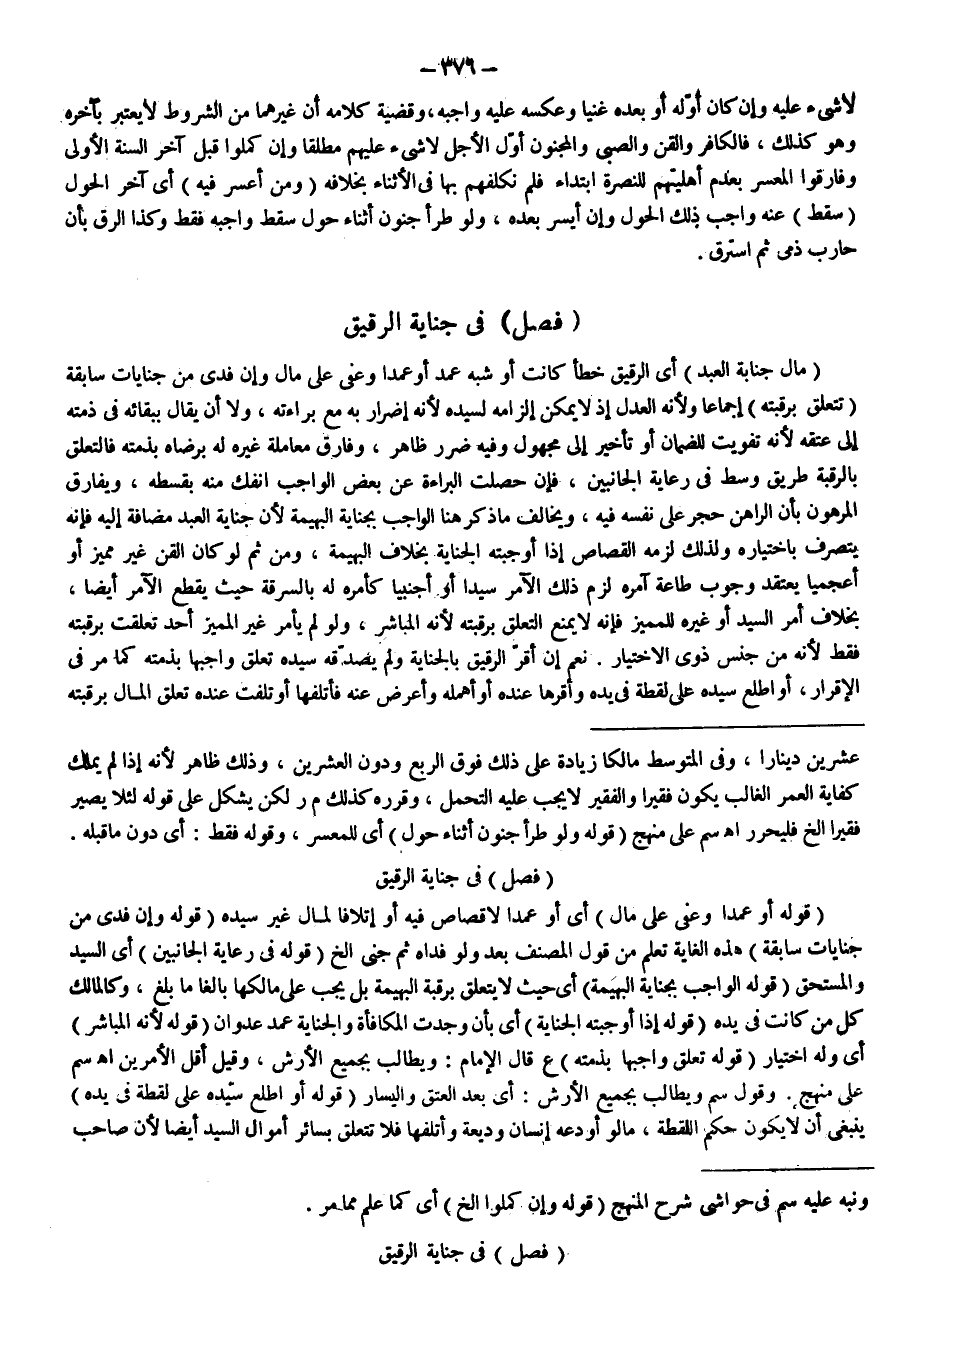 – ٣٧٦ –
لاشىء عليه وإن كان أوّله أو بعده غنيا وعكسه عليه واجبه، وقضية كلامه أن غيرهما من الشروط لايعتبر بآخره
وهو كذلك ، فالكافر والقن والصبى والمجنون أوّل الأجل لاشىء عليهم مطلقا وإن كملوا قبل آخر السنة الأولى
وفارقوا المعسر بعدم أهليتهم للنصرة ابتداء فلم نكلفهم بها فى الأثناء بخلافه ( ومن أعسر فيه ) أى آخر الحول
( سقط ) عنه واجب ذلك الحول وإن أيسر بعده ، ولو طرأ جنون أثناء حول سقط واجبه فقط وكذا الرق بأن
حارب ذمى ثم استرق .
( فصل) فى جناية الرقيق
( مال جناية العبد ) أى الرقيق خطأ كانت أو شبه عمد أوعمدا وعفى على مال وإن فدى من جنايات سابقة
( تتعلق برقبته ) إجماعا ولأنه العدل إذ لايمكن إلزامه لسيده لأنه إضرار به مع براءته ، ولا أن يقال ببقائه فى ذمته
إلى عتقه لأنه تفويت للضمان أو تأخير إلى مجهول وفيه ضرر ظاهر ، وفارق معاملة غيره له برضاه بذمته فالتعلق
بالرقبة طريق وسط فى رعاية الجانبين ، فإن حصلت البراءة عن بعض الواجب انفك منه بقسطه ، ويفارق
المرهون بأن الراهن حجر على نفسه فيه ، ويخالف ماذكر هنا الواجب بجناية البهيمة لأن جناية العبد مضافة إليه فإنه
يتصرف باختياره ولذلك لزمه القصاص إذا أوجبته الجناية بخلاف البهيمة ، ومن ثم لو كان القن غير مميز أو
أعجميا يعتقد وجوب طاعة آمره لزم ذلك الآمر سيدا أو أجنبيا كأمره له بالسرقة حيث يقطع الآمر أيضا ،
بخلاف أمر السيد أو غيره للمميز فإنه لايمنع التعلق برقبته لأنه المباشر ، ولو لم يأمر غير المميز أحد تعلقت برقبته
فقط لأنه من جنس ذوى الاختيار . نعم إن أقرّ الرقيق بالجناية ولم يصدّقه سيده تعلق واجبها بذمته كما مر فى
الإقرار ، أو اطلع سيده على لقطة فى يده وأقرها عنده أو أهمله وأعرض عنه فأتلفها أو تلفت عنده تعلق المال برقبته
عشرين دينارا ، وفى المتوسط مالكا زيادة على ذلك فوق الربع ودون العشرين ، وذلك ظاهر لأنه إذا لم يملك
كفاية العمر الغالب يكون فقيرا والفقير لايجب عليه التحمل ، وقرره كذلك م ر لكن يشكل على قوله لئلا يصير
فقيرا الخ فليحرر اه سم على منهج ( قوله ولو طرأ جنون أثناء حول ) أى للمعسر ، وقوله فقط : أى دون ماقبله .
( فصل ) فى جناية الرقيق
( قوله أو عمدا وعفى على مال ) أى أو عمدا لاقصاص فيه أو إتلافا لمال غير سيده ( قوله وإن فدى من
جنايات سابقة ) هذه الغاية تعلم من قول المصنف بعد ولو فداه ثم جنى الخ ( قوله فى رعاية الجانبين ) أى السيد
والمستحق ( قوله الواجب بجناية البهيمة) أى حيث لايتعلق برقبة البهيمة بل يجب على مالكها بالغا ما بلغ ، وكالمالك
كل من كانت فى يده ( قوله إذا أوجبته الجناية ) أى بأن وجدت المكافأة والجناية عمد عدوان ( قوله لأنه المباشر )
أى وله اختيار ( قوله تعلق واجبها بذمته ) ع قال الإمام : ويطالب بجميع الأرش ، وقيل أقل الأمرين اه سم
على منهج . وقول سم ويطالب بجميع الأرش : أى بعد العتق واليسار ( قوله أو اطلع سيّده على لقطة فى يده )
ينبغى أن لايكون حكم اللقطة ، مالو أودعه إنسان وديعة وأتلفها فلا تتعلق بسائر أموال السيد أيضا لأن صاحب
ونبه عليه سم فى حواشى شرح المنهج ( قوله وإن كملوا الخ ) أى كما علم مما مر .
( فصل ) فى جناية الرقيق